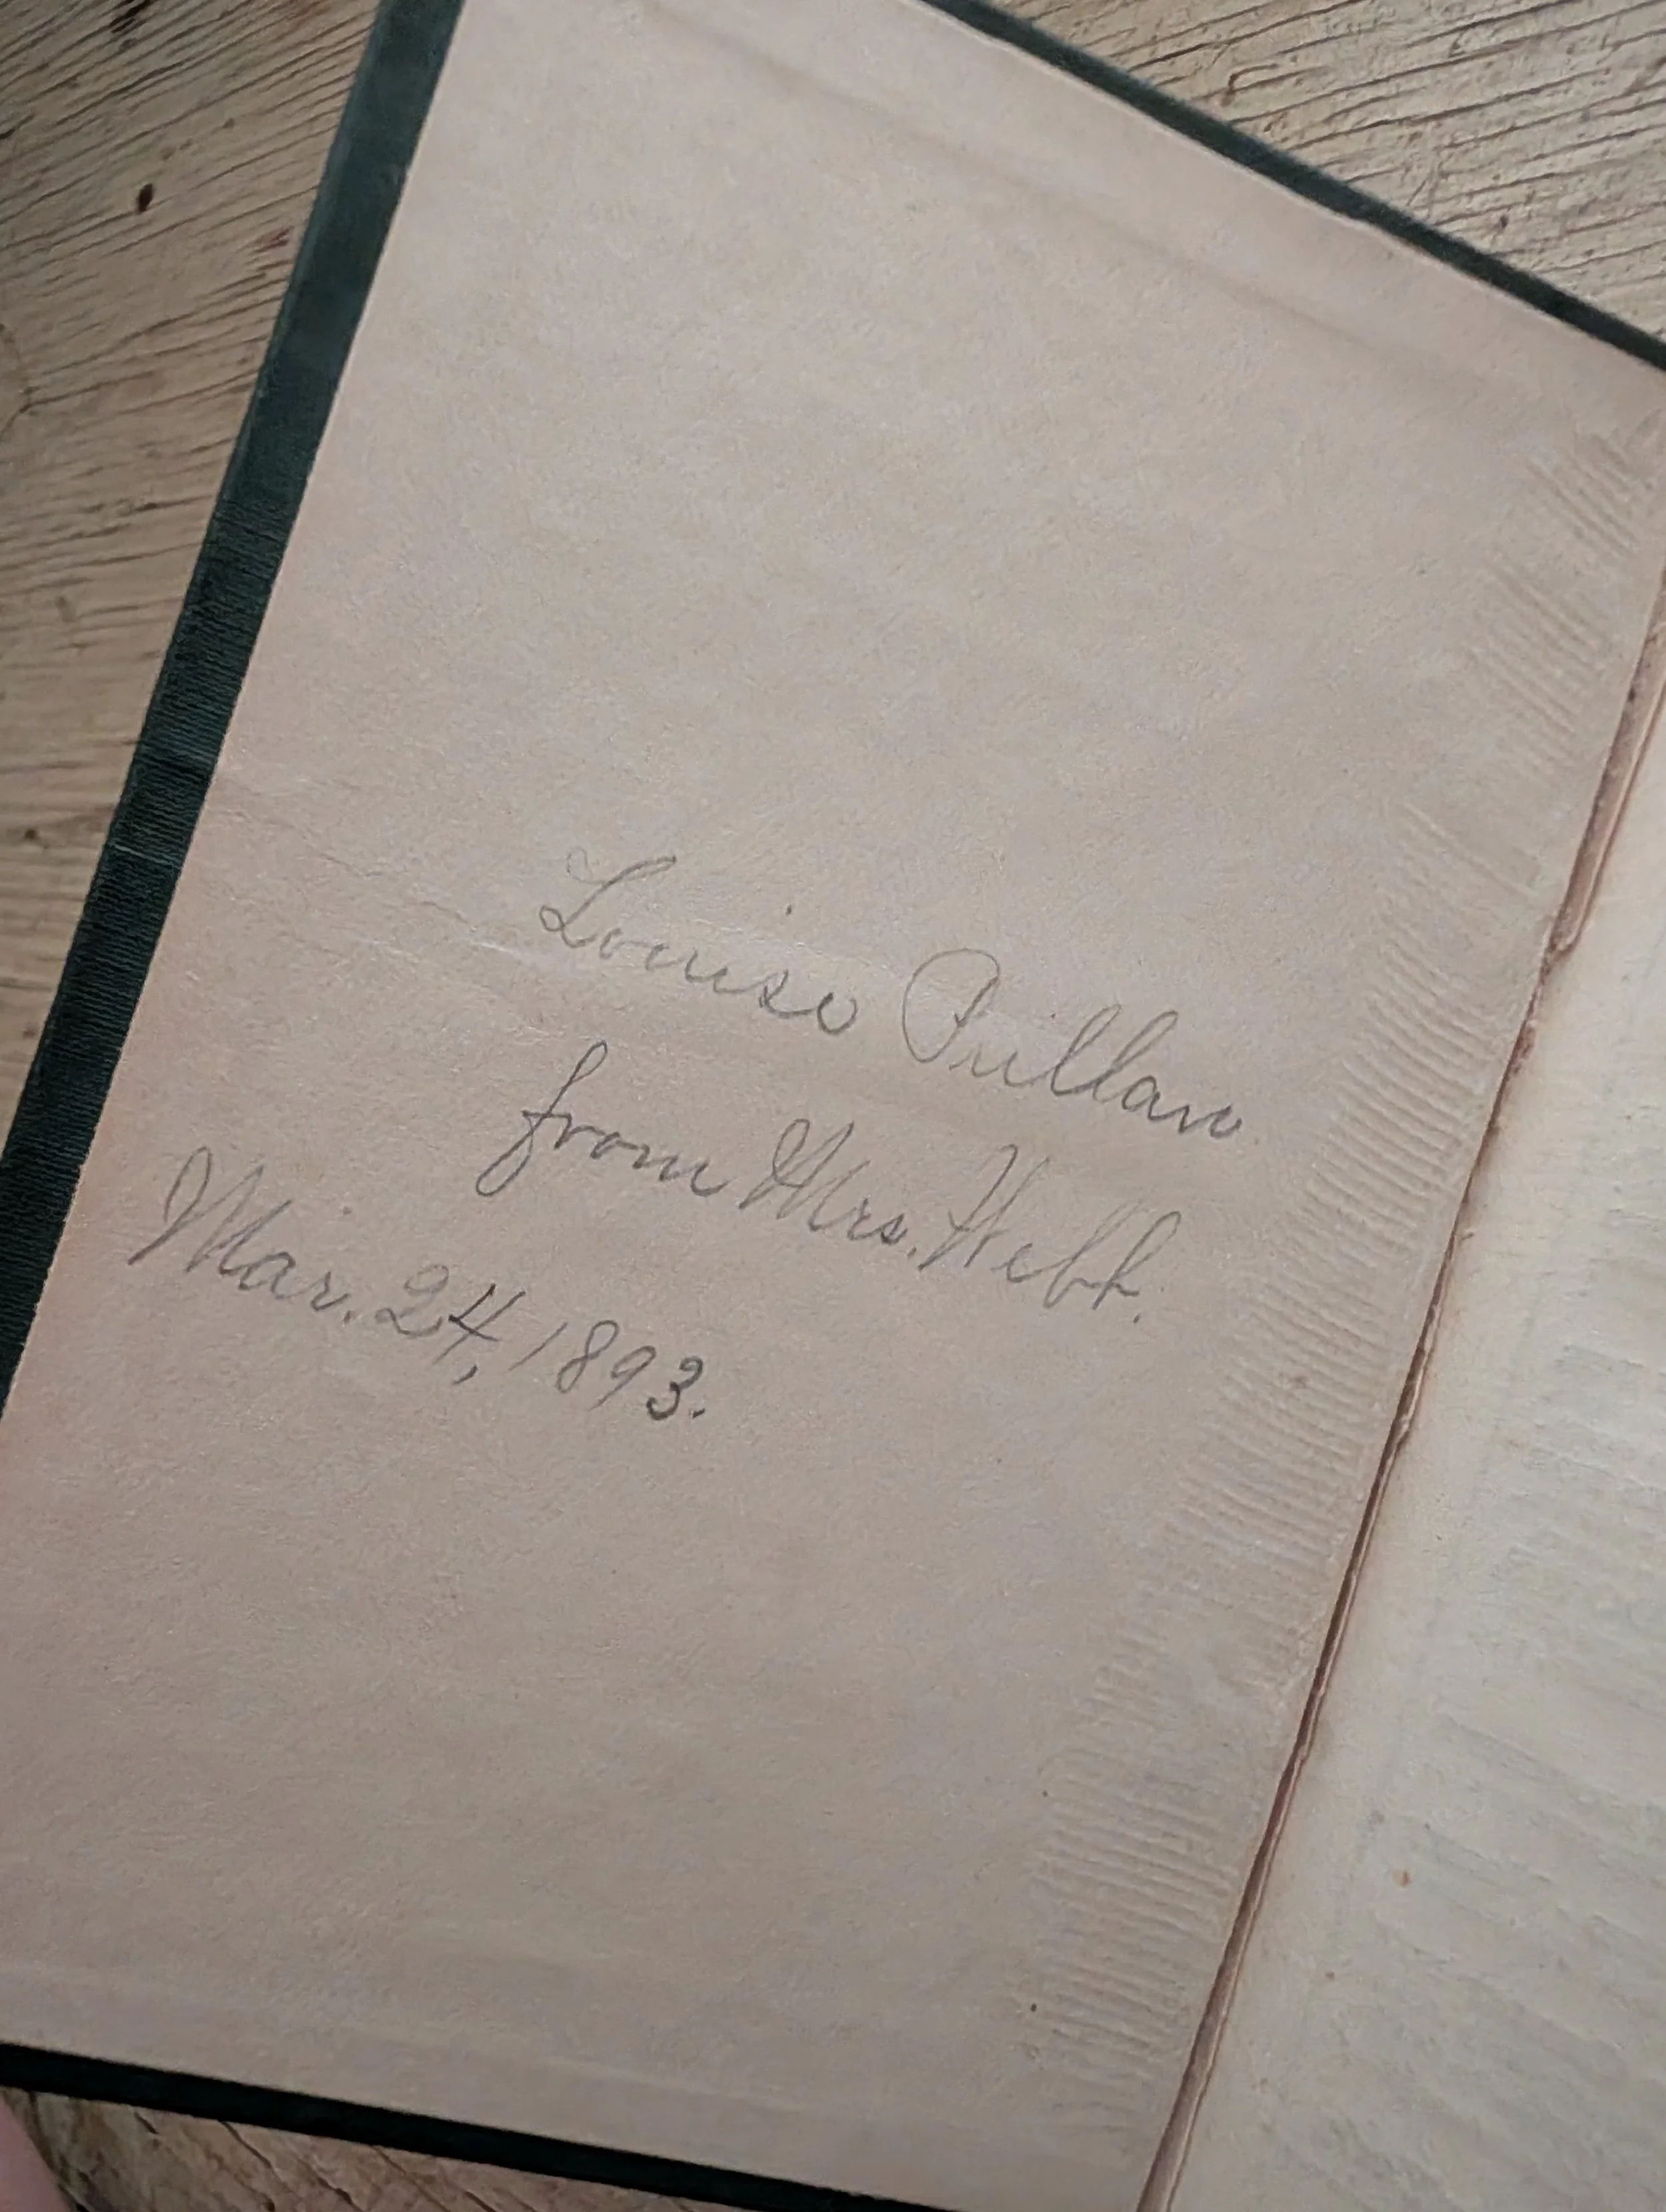 Louise Pullan
from Mrs. Webb.
Mar. 24, 1893.